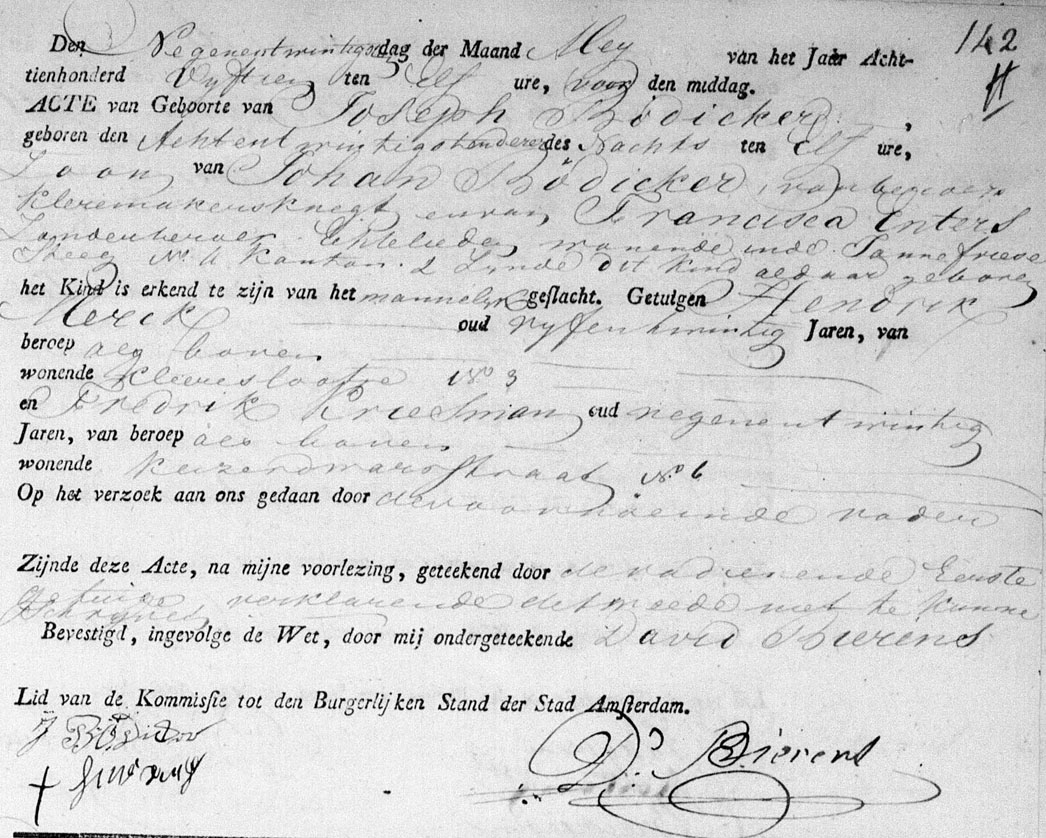 142
Den Negenentwintigsdag der Maand Mey van het Jaar Acht-
tienhonderd Vyftien ten Elf ure, voor den middag.
ACTE van Geboorte van Joseph Bödicker,
geboren den Achtentwintigsten dezer des Nachts ten Elf ure,
Zoon van Johan Bödicker, van beroep
kleremakersknegt en van Francisca Enters
Echtelieden, wonende in de
Steeg No. 4 Kanton 2 Zynde dit kind aldaar geboren
het Kind is erkend te zijn van het mannelyk geslacht. Getuigen Hendrik
Merck oud vyfentwintig Jaren, van
beroep als boven
wonende No 3
en Fredrik Krielman oud negenentwintig
Jaren, van beroep als boven
wonende Keizerdwarsstraat No 6
Op het verzoek aan ons gedaan door de voornoemde vader
Zijnde deze Acte, na mijne voorlezing, geteekend door de vader en de Eerste
getuige, verklarende de moeder niet te kunnen
Schryven
Bevestigd, ingevolge de Wet, door mij ondergeteekende David Bierens
Lid van de Kommissie tot den Burgerlijken Stand der Stad Amsterdam.
J Bödicker
D. Bierens